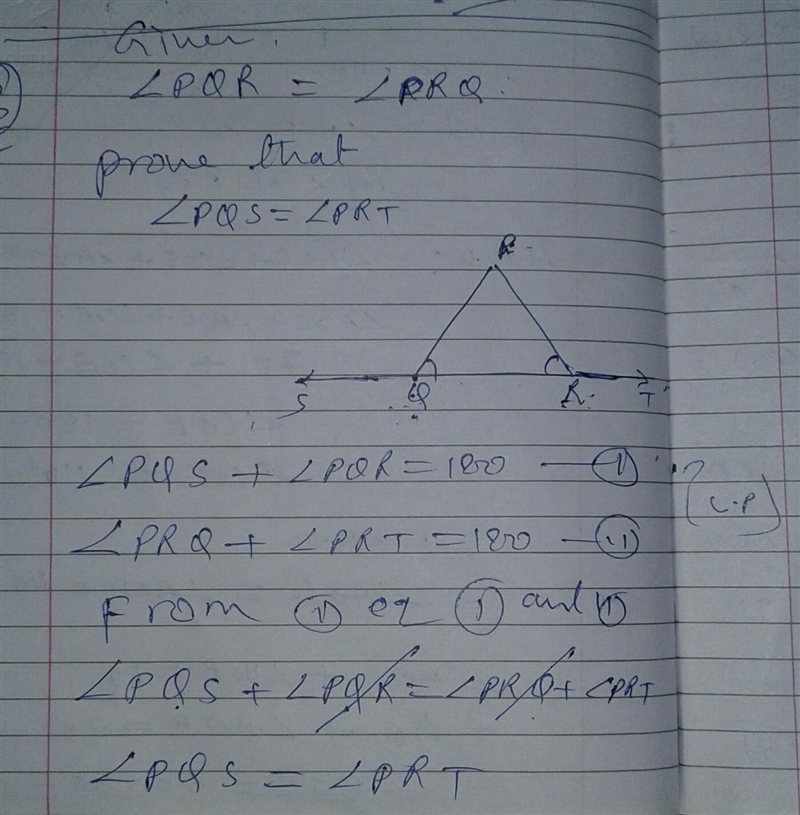 Given.
∠PQR = ∠PRQ.
prove that
∠PQS = ∠PRT
S Q R. T
∠PQS + ∠PQR = 180 — (i)
(L.P)
∠PRQ + ∠PRT = 180 — (ii)
From (i) eq (i) and (ii)
∠PQS + ∠PQR = ∠PRQ + ∠PRT
∠PQS = ∠PRT